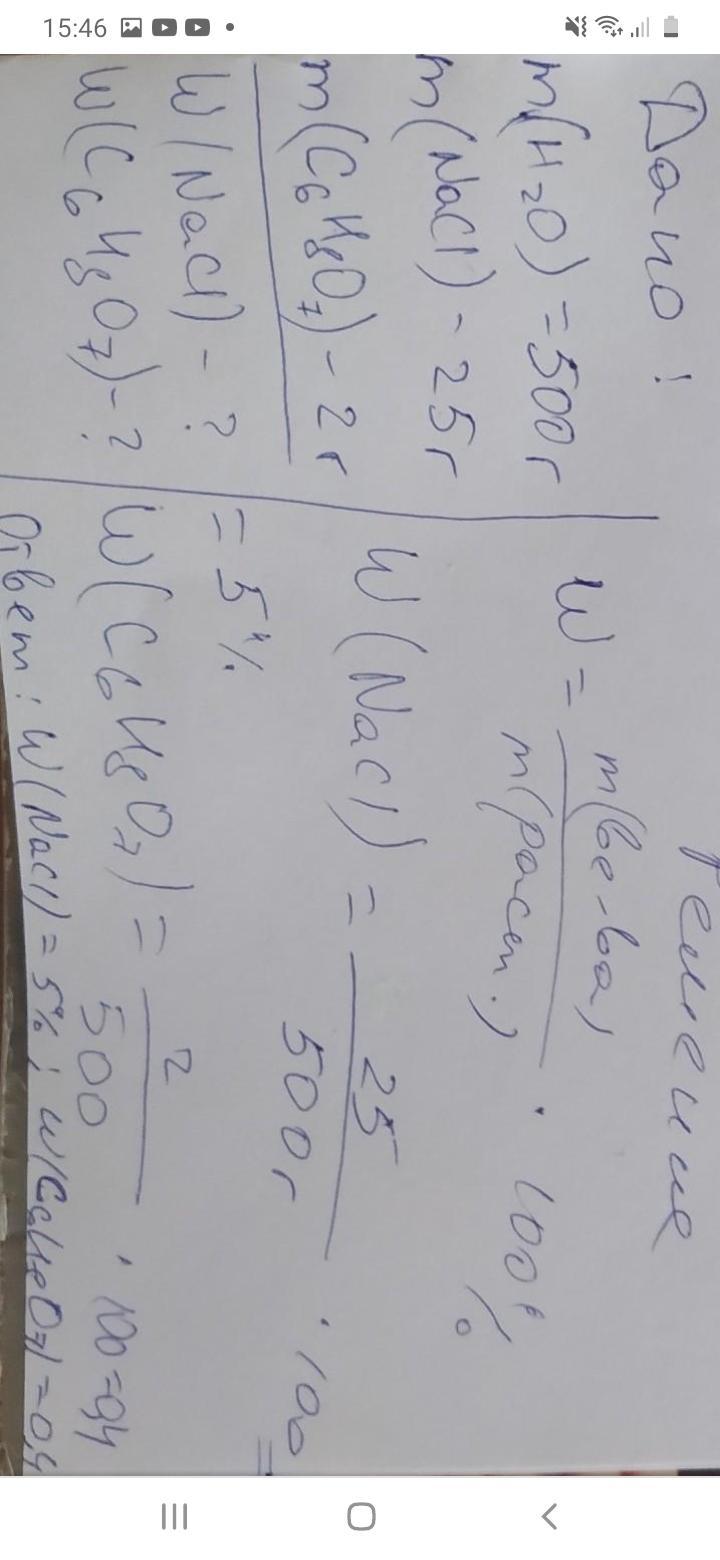 15:46
Дано:
m(H₂O) = 500 г
m(NaCl) - 25 г
m(C₆H₈O₇) - 2 г
W(NaCl) - ?
W(C₆H₈O₇) - ?
Решение
W = m(ве-ва) / m(раст.) · 100%
W(NaCl) = 25 / 500 г · 100 =
= 5%
W(C₆H₈O₇) = 2 / 500 · 100 = 0,4
Ответ: W(NaCl) = 5%; W(C₆H₈O₇) = 0,4